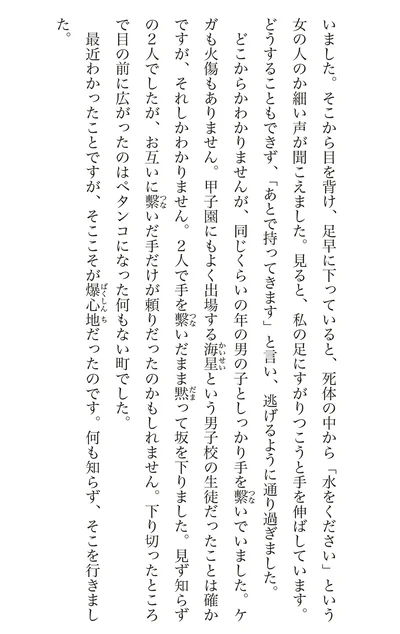 いました。そこから目を背け、足早に下っていると、死体の中から「水をください」という
女の人のか細い声が聞こえました。見ると、私の足にすがりつこうと手を伸ばしています。
どうすることもできず、「あとで持ってきます」と言い、逃げるように通り過ぎました。
　どこからかわかりませんが、同じくらいの年の男の子としっかり手を繫つないでいました。ケ
ガも火傷もありません。甲子園にもよく出場する海星かいせいという男子校の生徒だったことは確か
ですが、それしかわかりません。２人で手を繫つないだまま黙だまって坂を下りました。見ず知らず
の２人でしたが、お互いに繫つないだ手だけが頼りだったのかもしれません。下り切ったところ
で目の前に広がったのはペタンコになった何もない町でした。
　最近わかったことですが、そここそが爆心地ばくしんちだったのです。何も知らず、そこを行きまし
た。